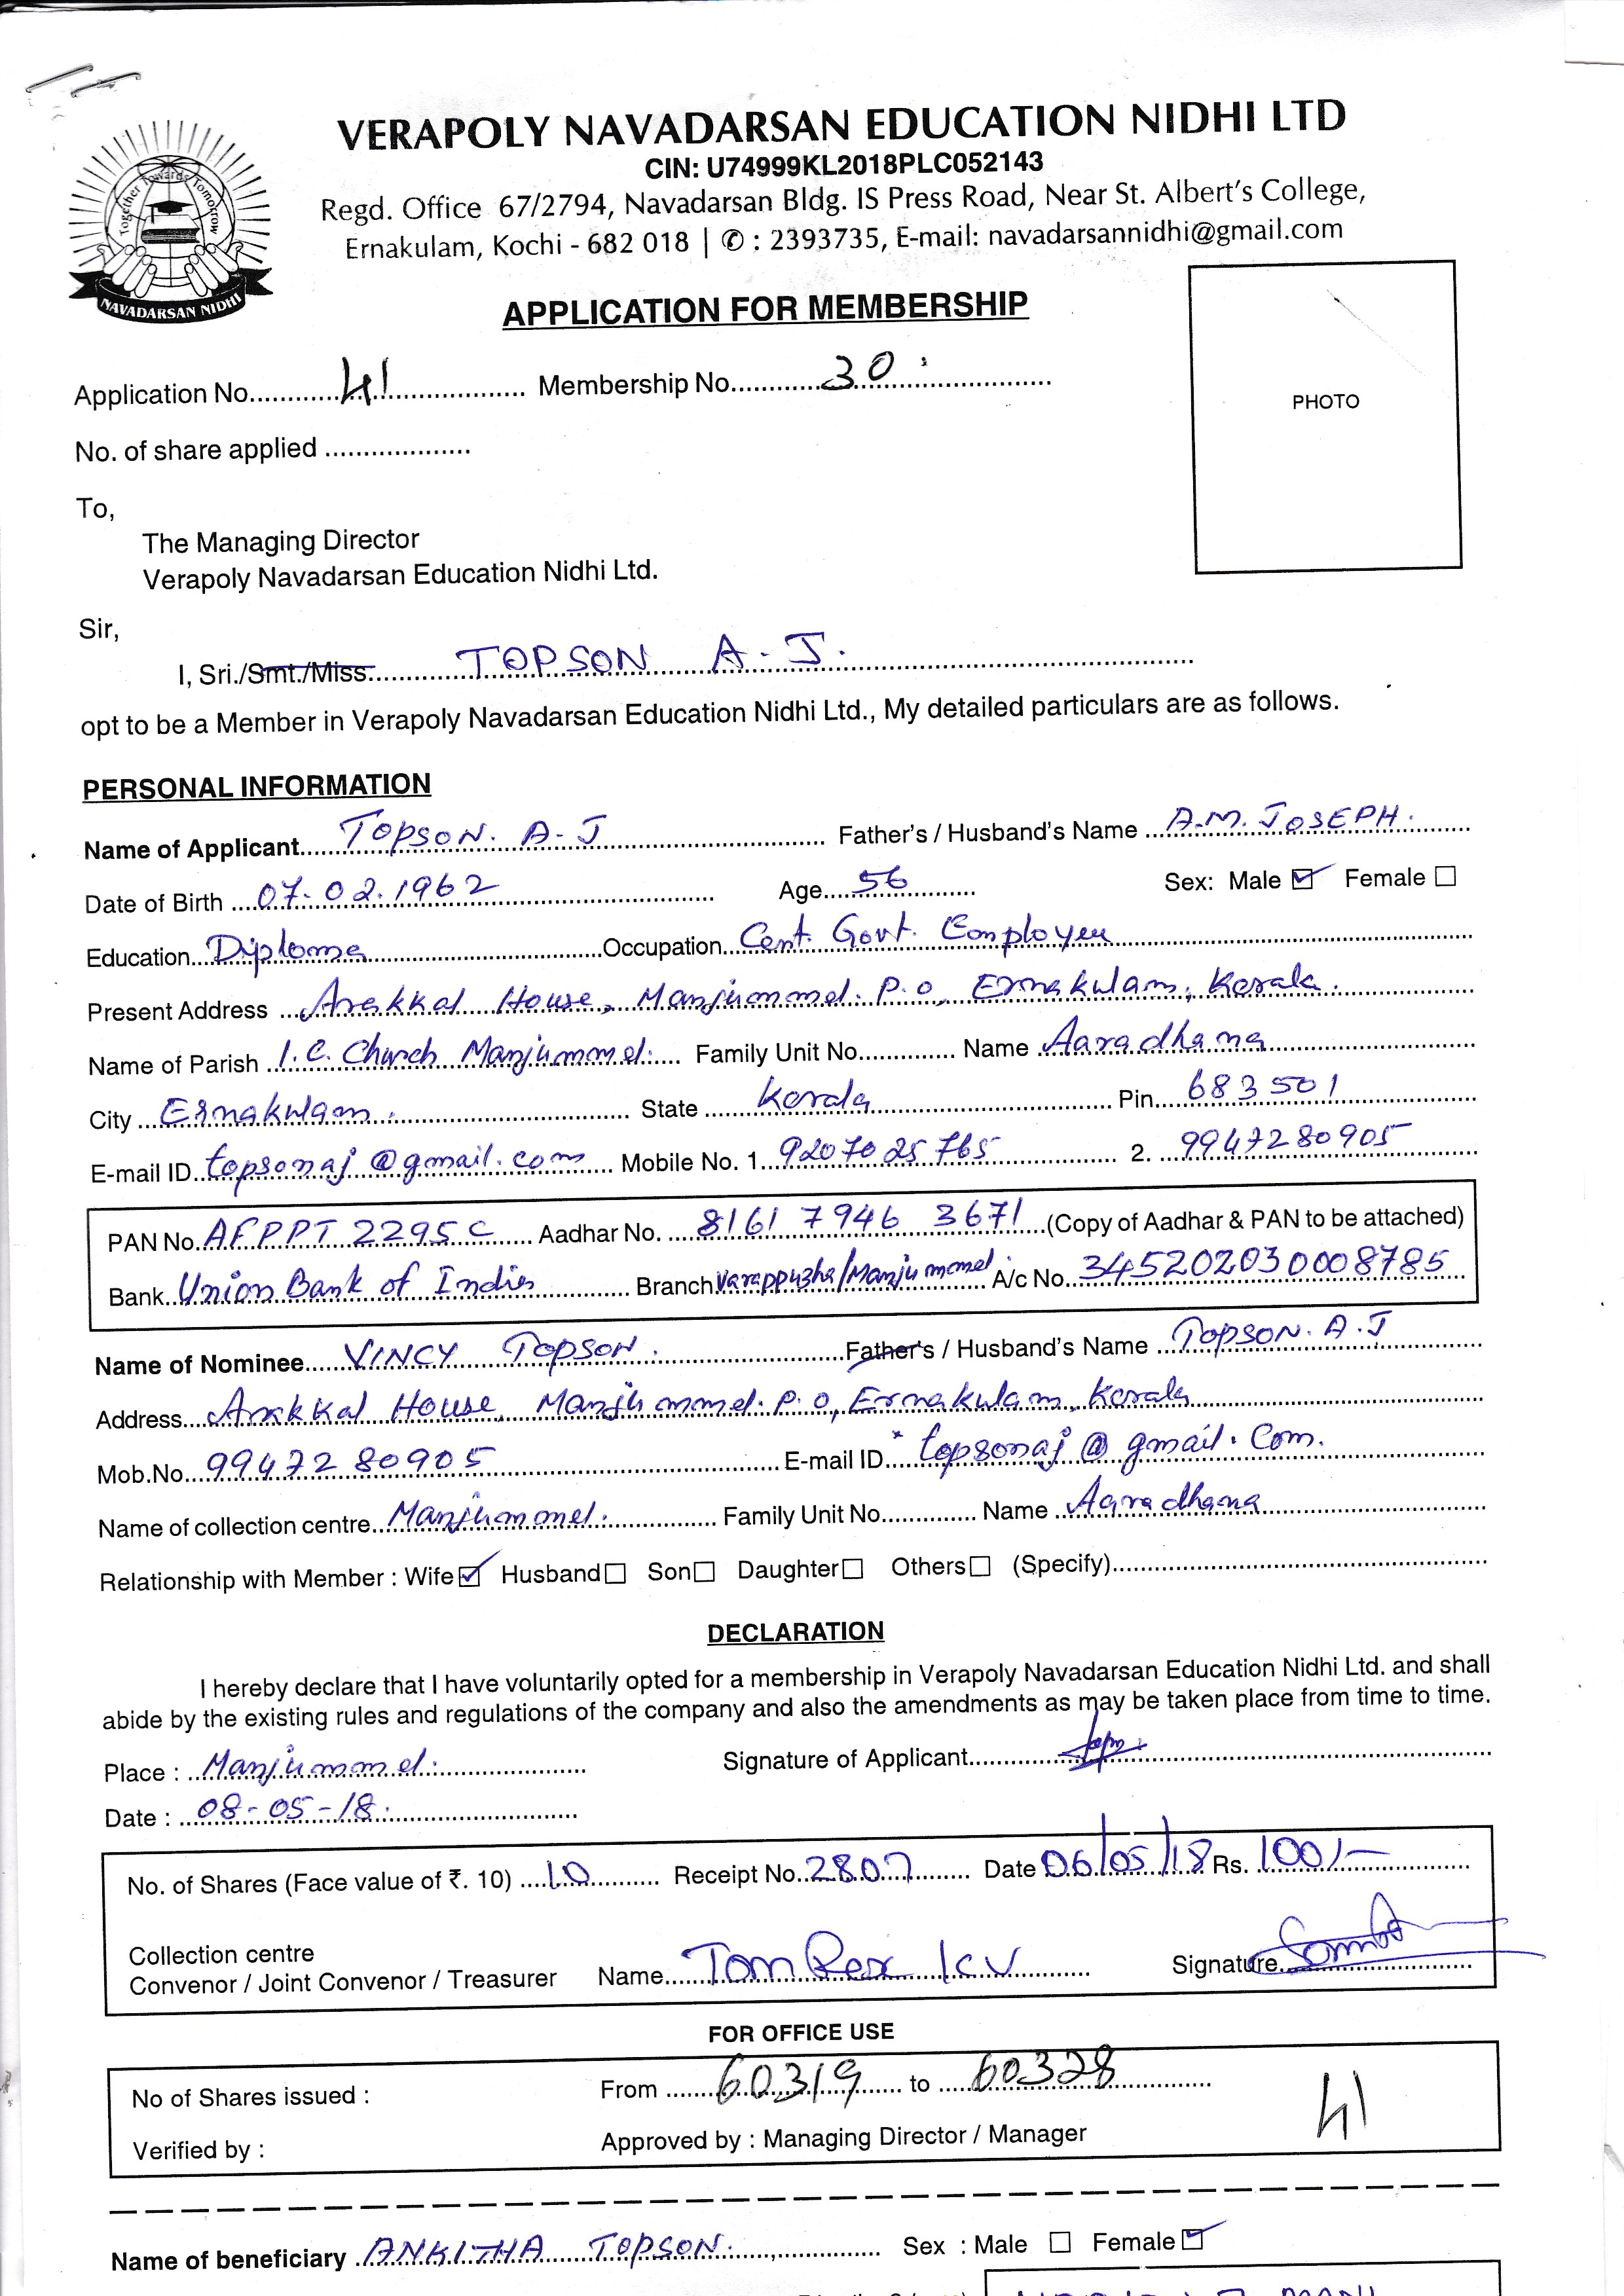 VERAPOLY NAVADARSAN EDUCATION NIDHI LTD
CIN: U74999KL2018PLC052143
Regd. Office 67/2794, Navadarsan Bldg. IS Press Road, Near St. Albert's College,
Ernakulam, Kochi - 682 018 | ✆ : 2393735, E-mail: navadarsannidhi@gmail.com
Together Towards Tomorrow
NAVADARSAN NIDHI
APPLICATION FOR MEMBERSHIP
Application No. 41 Membership No. 30
No. of share applied
PHOTO
To,
The Managing Director
Verapoly Navadarsan Education Nidhi Ltd.
Sir,
I, Sri./Smt./Miss. TOPSON A. J.
opt to be a Member in Verapoly Navadarsan Education Nidhi Ltd., My detailed particulars are as follows.
PERSONAL INFORMATION
Name of Applicant TOPSON. A-J Father's / Husband's Name A.M. JOSEPH.
Date of Birth 07-02.1962 Age 56 Sex: Male ☑ Female ☐
Education Diploma Occupation Cent. Govt. Employee
Present Address Arakkal House, Manjummel. P.O, Ernakulam, Kerala.
Name of Parish I.C. Church Manjummel. Family Unit No. Name Aaradhana
City Ernakulam. State Kerala Pin 683501
E-mail ID topsonaj@gmail.com Mobile No. 1. 9207025765 2. 9947280905
PAN No. AFPPT 2295C Aadhar No. 8161 7946 3671 (Copy of Aadhar & PAN to be attached)
Bank Union Bank of India Branch Varappuzha/Manjummel A/c No. 345202030008785
Name of Nominee VINCY TOPSON. Father's / Husband's Name TOPSON. A.J
Address Arakkal House, Manjummel. P.O, Ernakulam, Kerala
Mob.No. 9947280905 E-mail ID topsonaj@gmail.Com.
Name of collection centre Manjummel. Family Unit No. Name Aaradhana
Relationship with Member : Wife ☑ Husband ☐ Son ☐ Daughter ☐ Others ☐ (Specify)
DECLARATION
I hereby declare that I have voluntarily opted for a membership in Verapoly Navadarsan Education Nidhi Ltd. and shall
abide by the existing rules and regulations of the company and also the amendments as may be taken place from time to time.
Place : Manjummel. Signature of Applicant
Date : 08-05-18.
No. of Shares (Face value of ₹. 10) 10 Receipt No. 2807 Date 06/05/18 Rs. 100/-
Collection centre
Convenor / Joint Convenor / Treasurer Name Tom Rex KV Signature
FOR OFFICE USE
No of Shares issued : From 60319 to 60328
41
Verified by : Approved by : Managing Director / Manager
Name of beneficiary ANKITHA TOPSON. Sex : Male ☐ Female ☑